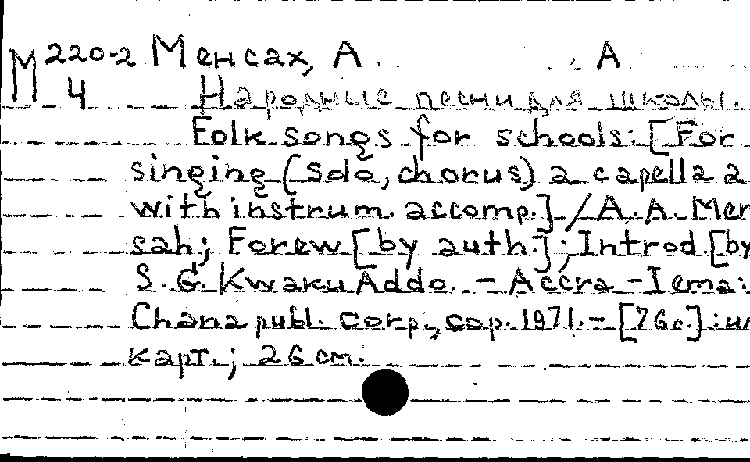 М 220-2 Менсах, А. А
4 Народные песни для школы.
Folk songs for schools: [For
singing (Solo, chorus) a capella a
with instrum. accomp.] / A. A. Men
sah; Forew [by auth.]; Introd [by
S. G. Kwaku Addo. - Accra - Tema:
Ghana publ. corp., cop. 1971. - [76 c.]: ил
карт.; 26 cm.